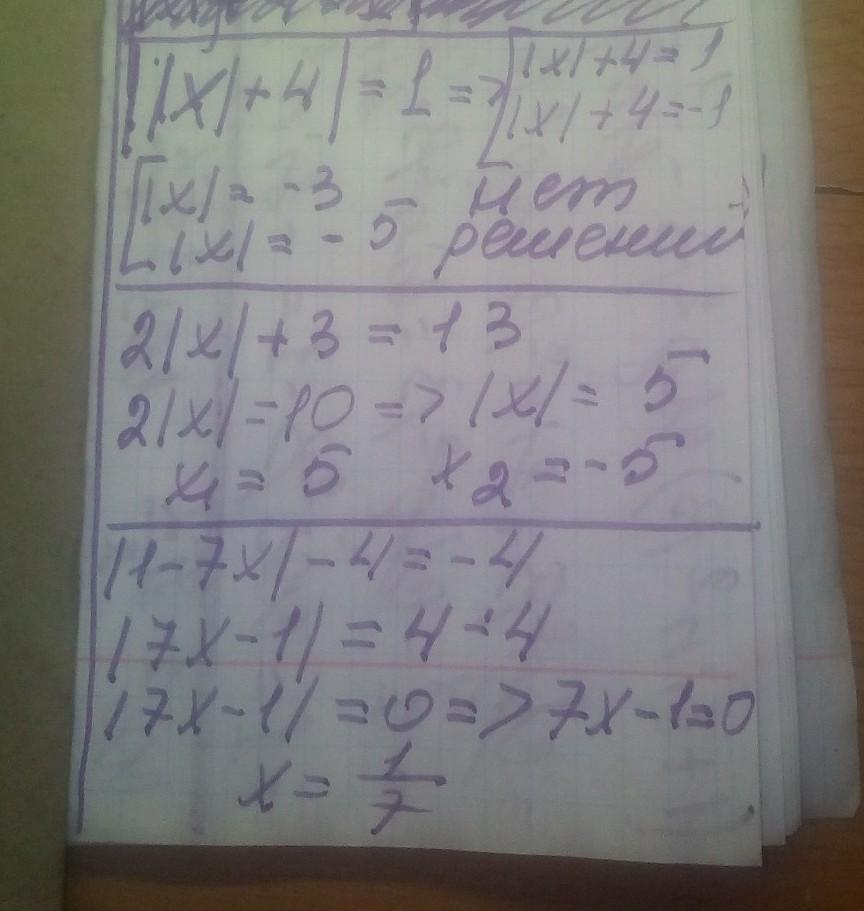 ||x|+4| = 1 => [|x|+4=1
|x|+4=-1
[|x| = -3 нет
|x| = -5 решений
2|x|+3 = 13
2|x|=10 => |x| = 5
x1 = 5 x2 = -5
|1-7x|-4=-4
|7x-1| = 4-4
|7x-1| = 0 => 7x-1=0
x = 1/7